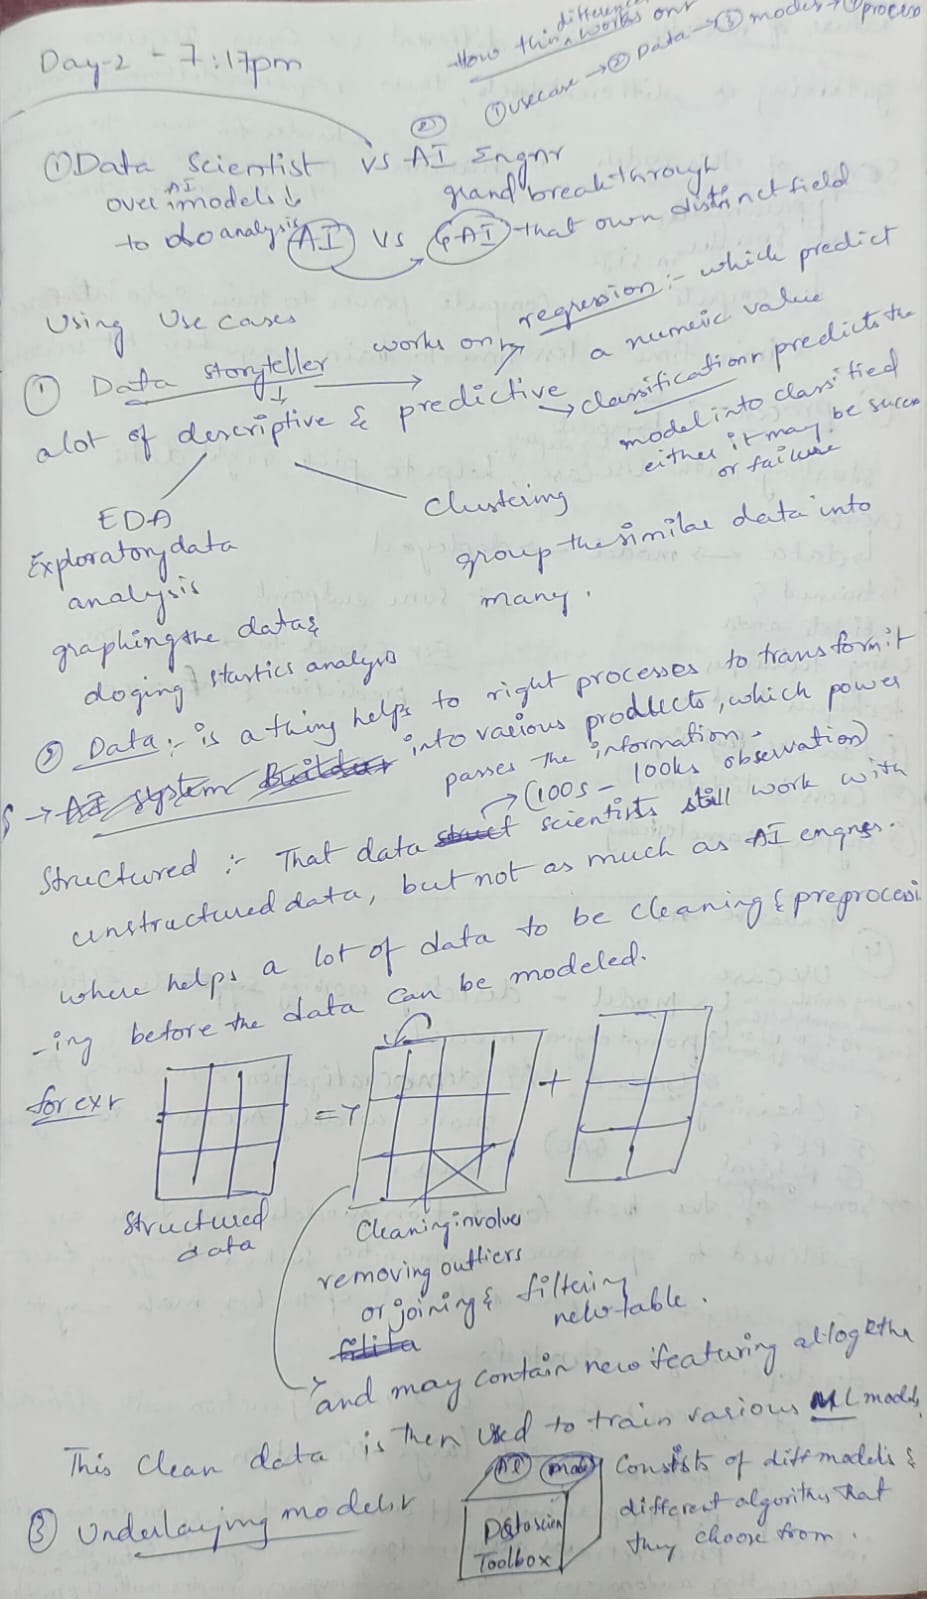 Day-2 - 7:17pm
How thin differenc works out
① usecase → ② Data → ③ models → ④ process
① Data Scientist vs ② AI Engnr
over AI models ↓
to do analysis
grand breakthrough
AI vs GAI that own distinct field
Using Use cases
① Data storyteller → works on regression :- which predict
a numeric value
a lot of descriptive & predictive → classification predicts the
model into classified
either it may be succes
or failure
EDA
Exploratory data
analysis
graphing the data &
doging stastics analysis
Clustering
group the similar data into
many.
② Data :- is a thing helps to right processes to transform it
into various products, which power
passes the information.
→ AI System Builder
→ (100s - 100ks observation)
Structured :- That data struct scientists still work with
unstructured data, but not as much as AI engnrs.
where helps a lot of data to be cleaning & preprocessi
-ing before the data can be modeled.
for ex
=> +
Structured
data
Cleaning involves
removing outliers
or joining & filtering
filita new table.
and may contain new featuring altogethe
This clean data is then used to train various ML models,
③ Underlaying models
AI models
Data scien
Toolbox
Consists of diff models &
different algorithms that
they choose from.